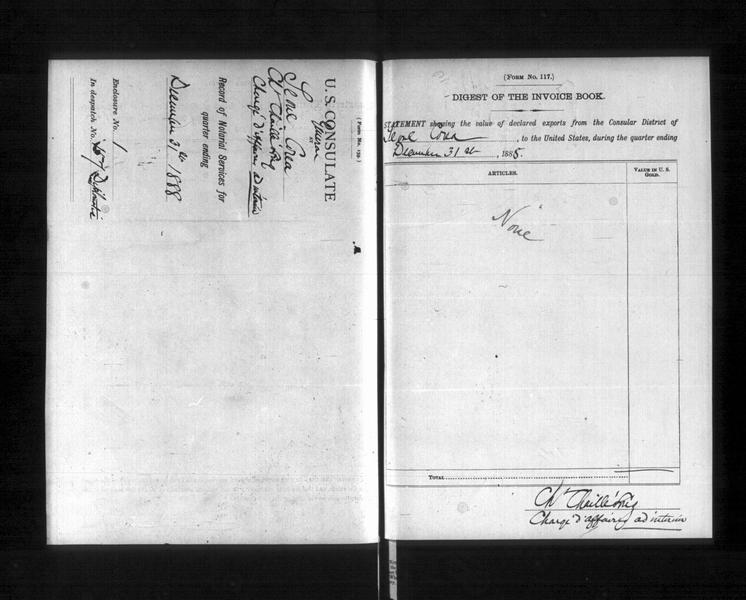 ( Form No. 139.)
U. S. CONSULATE
at
Seoul Corea
Chargé d'affaires ad interim
Record of Notarial Services for
quarter ending
December 31st 1888
Enclosure No. 1
In despatch No.
(FORM No. 117.)
DIGEST OF THE INVOICE BOOK.
STATEMENT showing the value of declared exports from the Consular District of
Seoul Corea, to the United States, during the quarter ending
December 31st, 1888.
ARTICLES.
VALUE IN U. S.
GOLD.
None
TOTAL
Chargé d'affaires ad interim